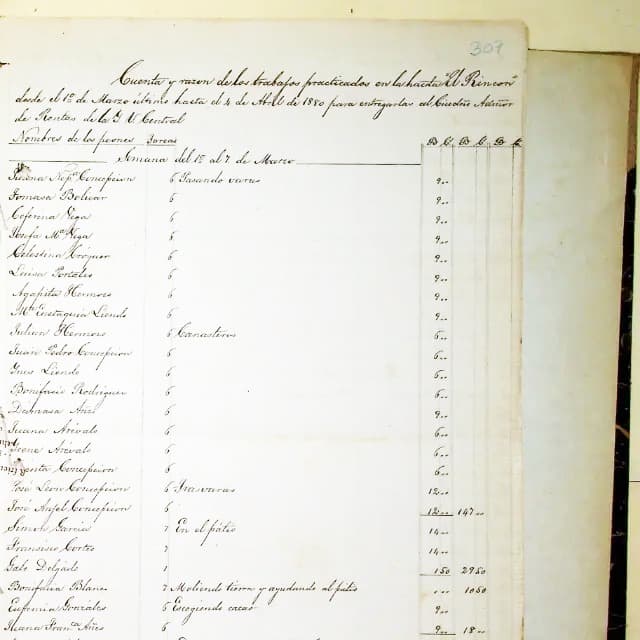 307
Cuenta y razon de los trabajos practicados en la hasda "El Rincon"
desde el 1º de Marzo último hasta el 4 de Abril de 1880 para entregarla al Ciudno Admor
de Rentas de la G V Central
Nombres de los peones Tareas
Semana del 1º al 7 de Marzo
Concepcion 6 Pasando varas 9..
Tomasa Bolivar 6 9..
Ceferina Vega 6 9..
Mª Vega 6 9..
Celestina 6 9..
Luisa Porcales 6 9..
Agapita Hermoso 6 9..
Mª Eustaquia Liendo 6 9..
Julian Hermoso 6 Canasteros 6..
Juan Pedro Concepcion 6 6..
Ynes Liendo 6 6..
Bonifacio Rodriguez 6 6..
Damasa Añes 6 9..
Juana Arévalo 6 6..
Arévalo 6 6..
Concepcion 6 6..
José Leon Concepcion 6 Tras varas 12..
José Anjel Concepcion 6 12.. 147..
Simon Garcia 7 En el pátio 14..
Fransisco Cortes 7 14..
Galo Delgado 1 1 50 29 50
Bonifacia Blanes 7 Moliendo tierra y ayudando al pátio 10 50
Eufemia Gonzales 6 Escogiendo cacao 9..
Juana Francª Añes 6 9.. 18..